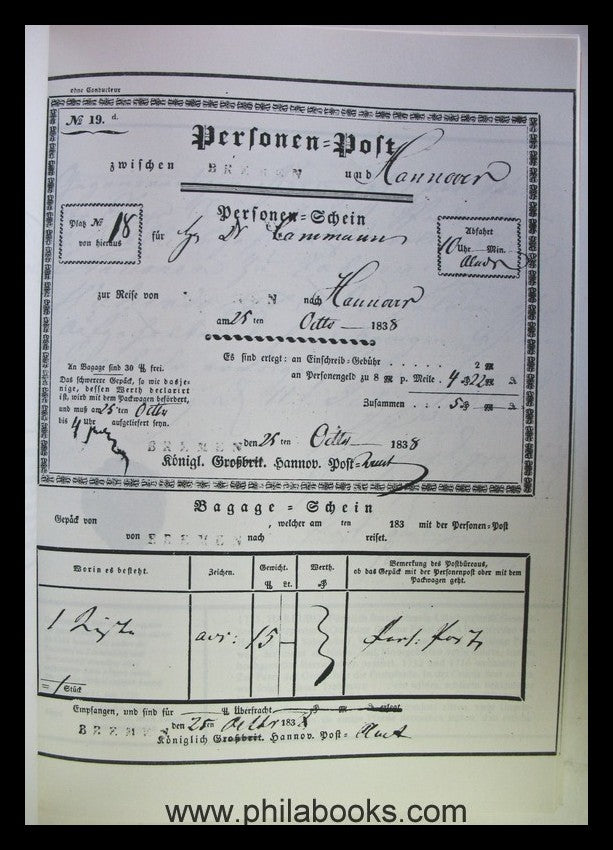 ohne Conducteur
№ 19. d.
Personen-Post
zwischen BREMEN und Hannover
Personen-Schein
Platz № 18
von hieraus
für Dr. Lammann
Abfahrt
10 Uhr Min.
zur Reise von BREMEN nach Hannover
am 25 ten Octbr 1838
Es sind erlegt: an Einschreib-Gebühr . . . . . 2
an Personengeld zu 8 p. Meile. 4 22
Zusammen . . . . 5
An Bagage sind 30 ℔ frei.
Das schwerere Gepäck, so wie dasje-
nige, dessen Werth declarirt
ist, wird mit dem Packwagen befördert,
und muß am 25 ten Octbr
bis 4 Uhr aufgeliefert seyn.
BREMEN den 25 ten Octbr 1838
Königl. Großbrit. Hannov. Post-Amt
Bagage-Schein
Gepäck von , welcher am ten 183 mit der Personen-Post
von BREMEN nach reiset.
Worin es besteht. Zeichen. Gewicht. ℔ Lt. Werth. Bemerkung des Postbüreaus,
ob das Gepäck mit der Personenpost oder mit dem
Packwagen geht.
1 15 Pers: Post
= 1 Stück
Empfangen, und sind für ℔ Überfracht erlegt.
BREMEN den 25 ten Octbr 1838
Königlich Großbrit. Hannov. Post-Amt
www.philabooks.com